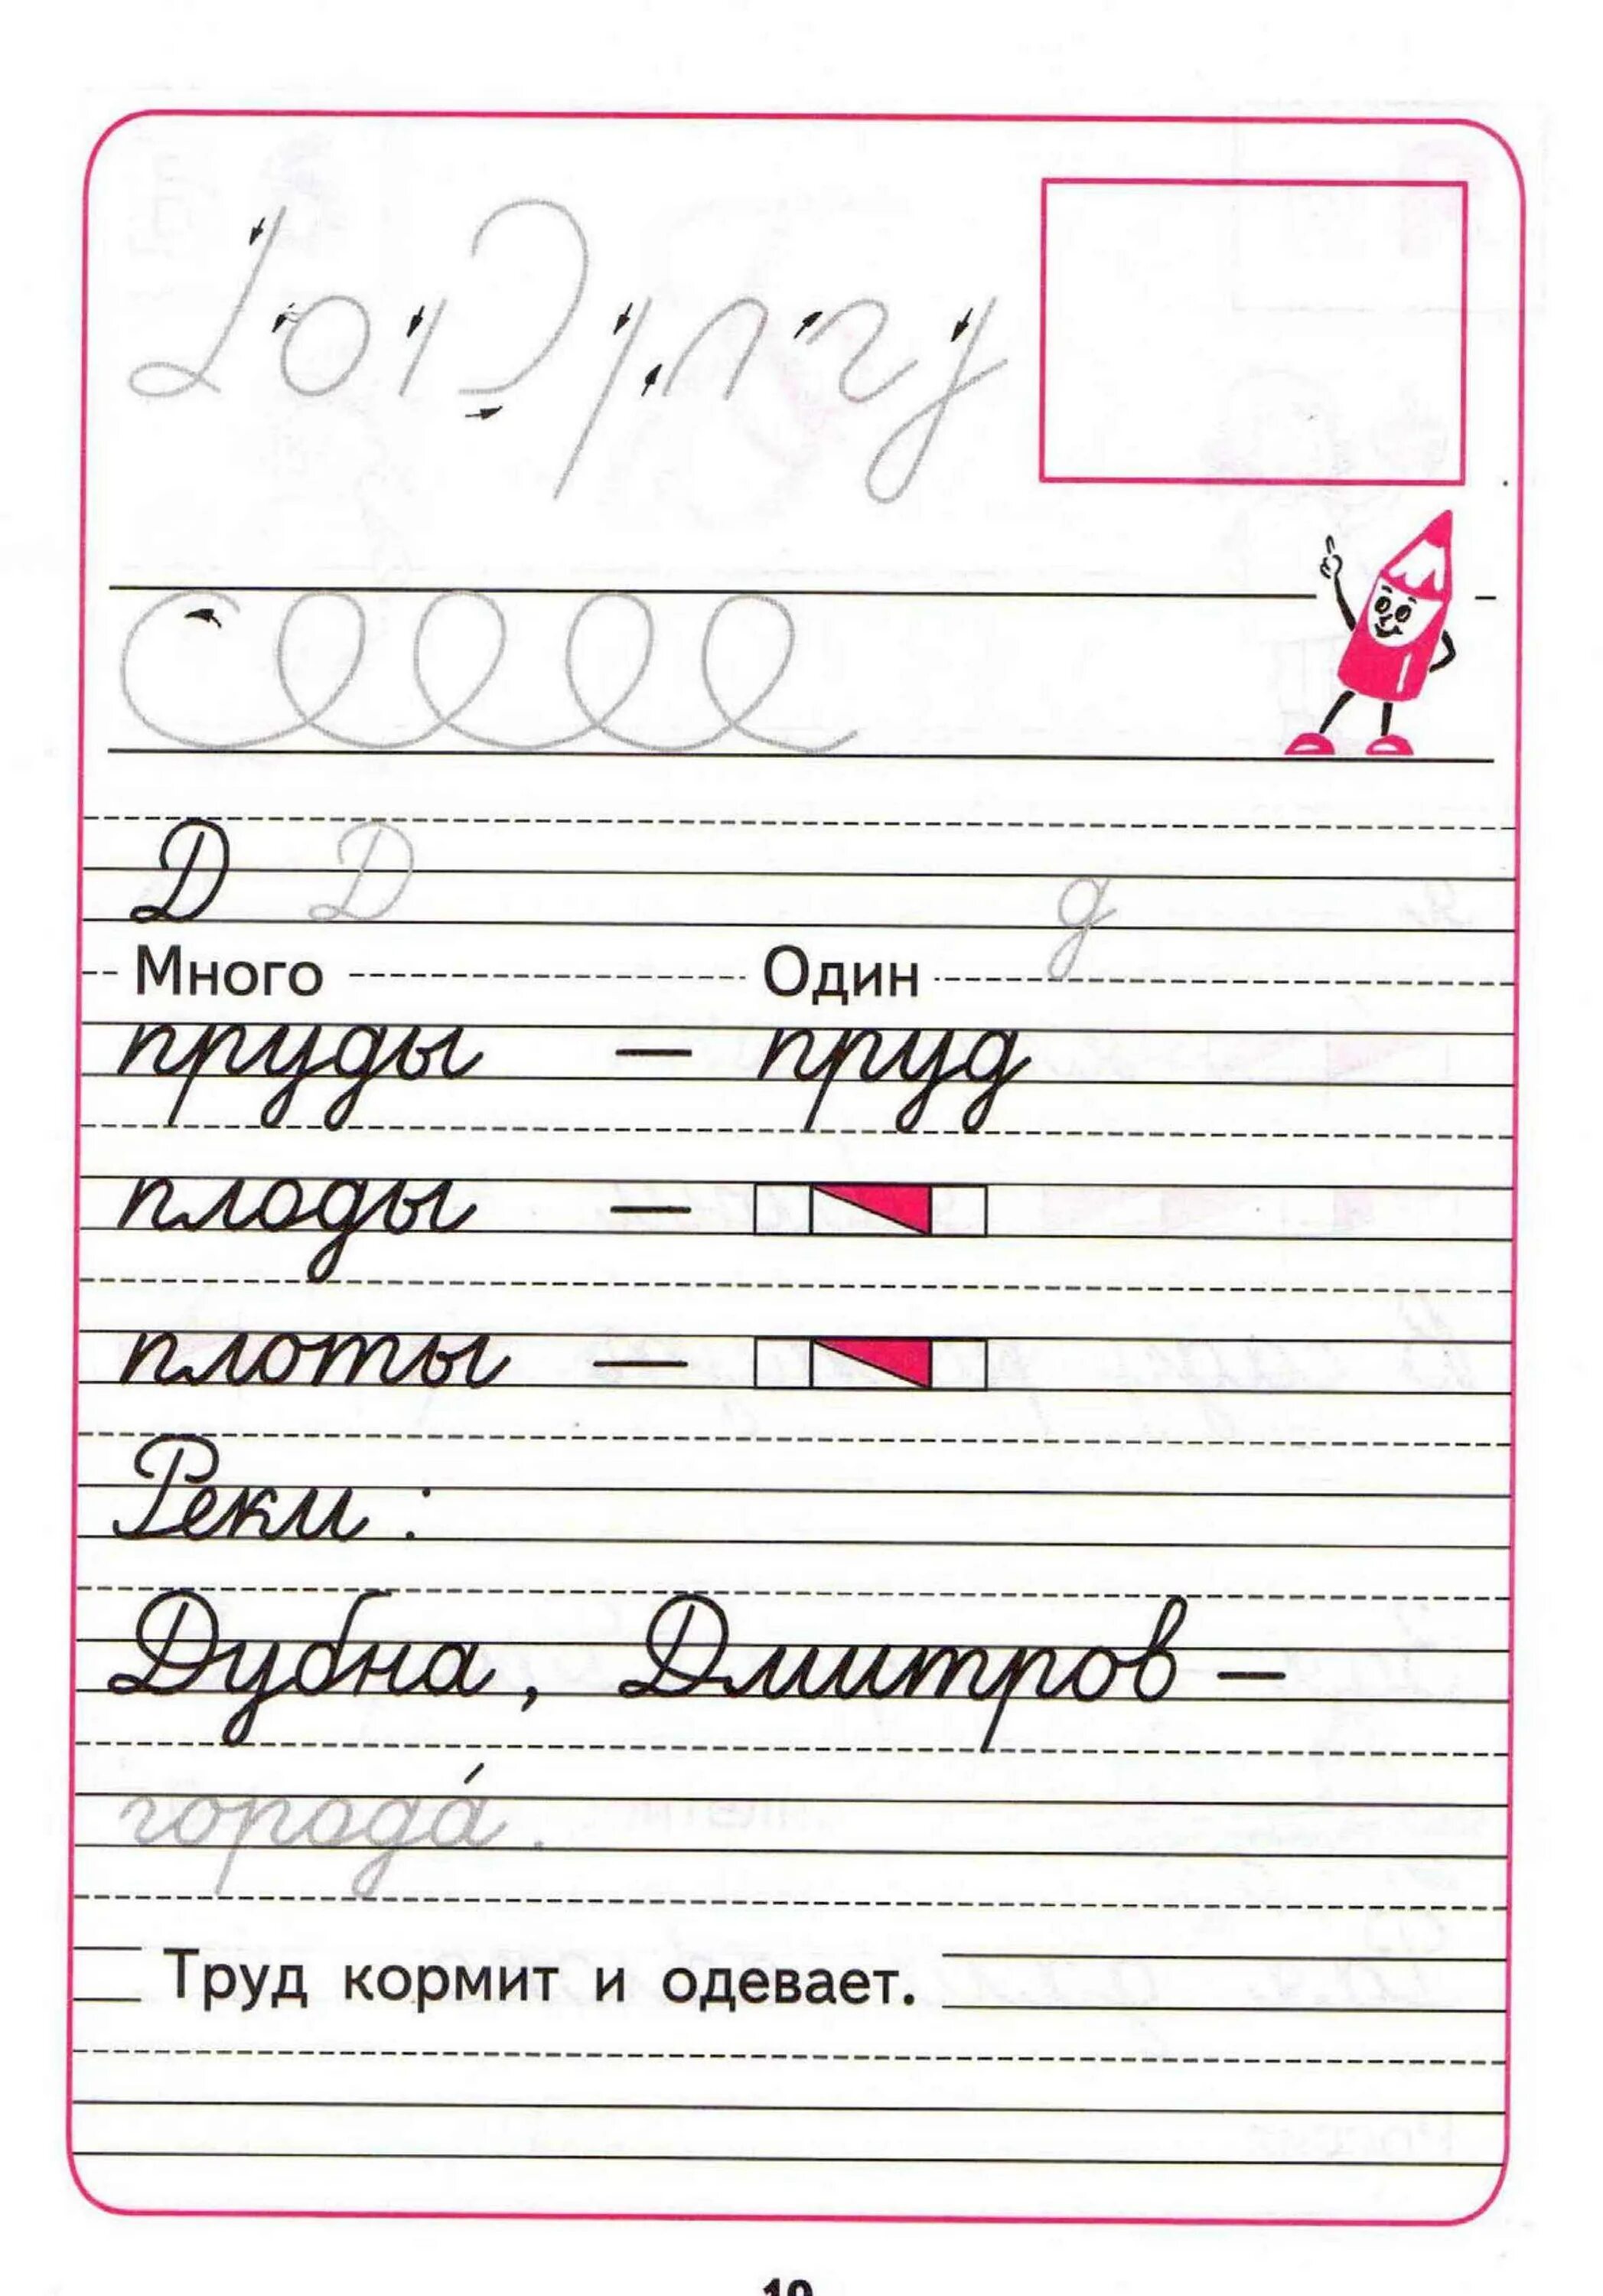 Д Д д
Много Один
пруды — пруд
плоды —
плоты —
Реки:
Дубна, Дмитров —
города́.
Труд кормит и одевает.